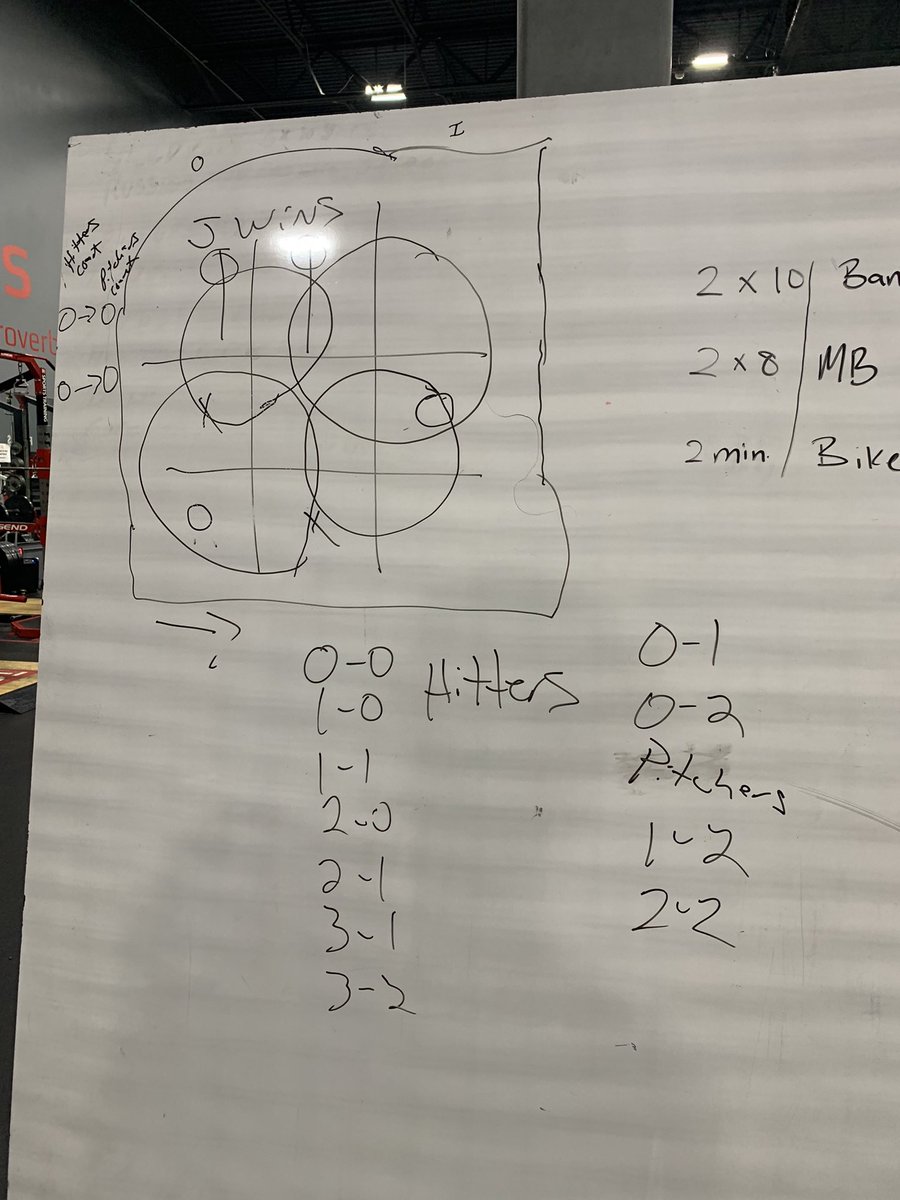 O
I
J Wins
Hitters
count
Pitchers
count
O→O
O→O
S
roverb
GEND
X
X
2 x 10 | Ban
2 x 8 | MB
2 min. | Bike
0-0
1-0
Hitters
1-1
2-0
2-1
3-1
3-2
0-1
0-2
Pitchers
1-2
2-2